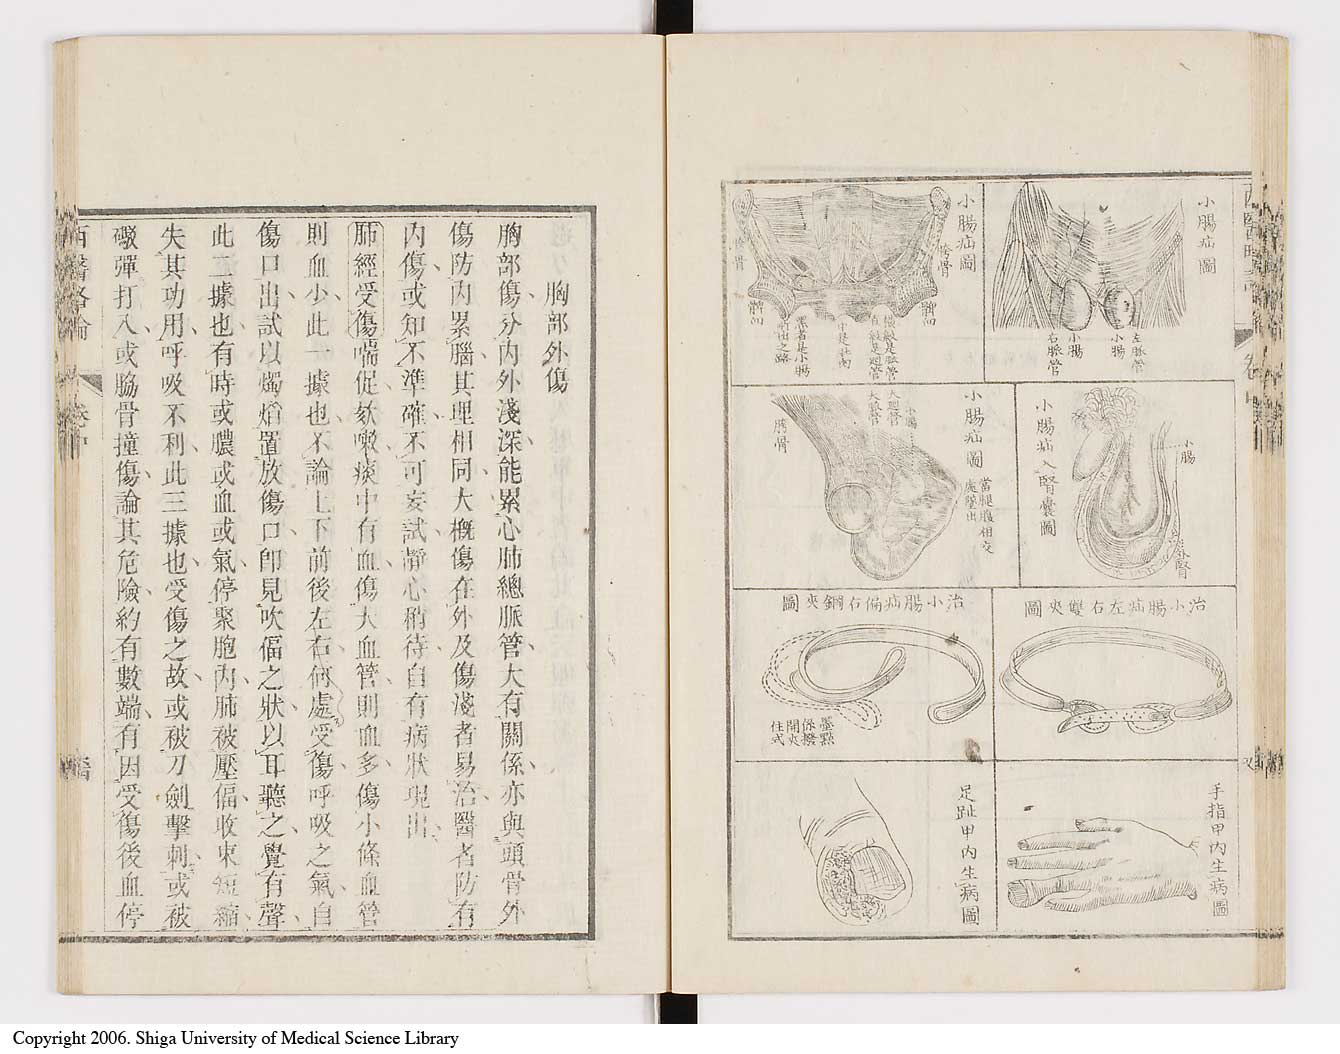 小腸疝圖
左脈管
小腸
小腸
右脈管
小腸疝圖
胯骨
髀臼
髀臼
小腸疝入腎囊圖
小腸
外腎
小腸疝圖
當腿腹相交
處墜出
小腸
大迴管
大脈管
胯骨
治小腸疝左右雙夾圖
治小腸疝偏右鋼夾圖
墨點
係撥
開夾
住式
手指甲內生病圖
足趾甲內生病圖
胸部外傷
胸部傷分內外淺深能累心肺總脈管大有關係亦與頭骨外
傷防內累腦其理相同大概傷在外及傷淺者易治醫者防有
內傷或知不準確不可妄試靜心稍待自有病狀現出
肺經受傷喘促欬嗽痰中有血傷大血管則血多傷小條血管
則血少此一據也不論上下前後左右何處受傷呼吸之氣自
傷口出試以燭焰置放傷口卽見吹偪之狀以耳聽之覺有聲
此二據也有時或膿或血或氣停聚胞內肺被壓偪收束短縮
失其功用呼吸不利此三據也受傷之故或被刀劍擊刺或被
礮彈打入或脇骨撞傷論其危險約有數端有因受傷後血停
西醫略論
卷中